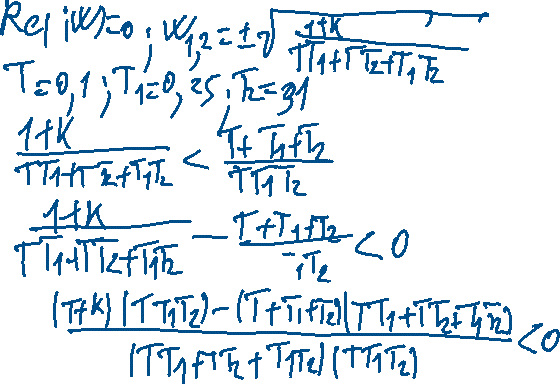 Re(iW)=0 ; W1,2=±√(1+K)/(TT1+TT2+T1T2)
T=0,1 ; T1=0,25 ; T2=31
(1+K)/(TT1+TT2+T1T2) < (T+T1+T2)/(TT1T2)
(1+K)/(TT1+TT2+T1T2) - (T+T1+T2)/(T2) < 0
((T+K)(TT1T2)-(T+T1+T2)(TT1+TT2+T1T2))/((TT1+TT2+T1T2)(TT1T2)) < 0